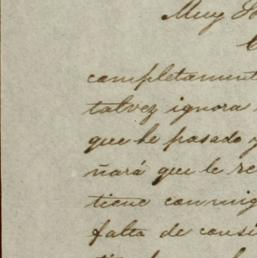 Muy
completament
talvez ignora
que he pasado y
ñará que le re
tiene conmig
falta de consi